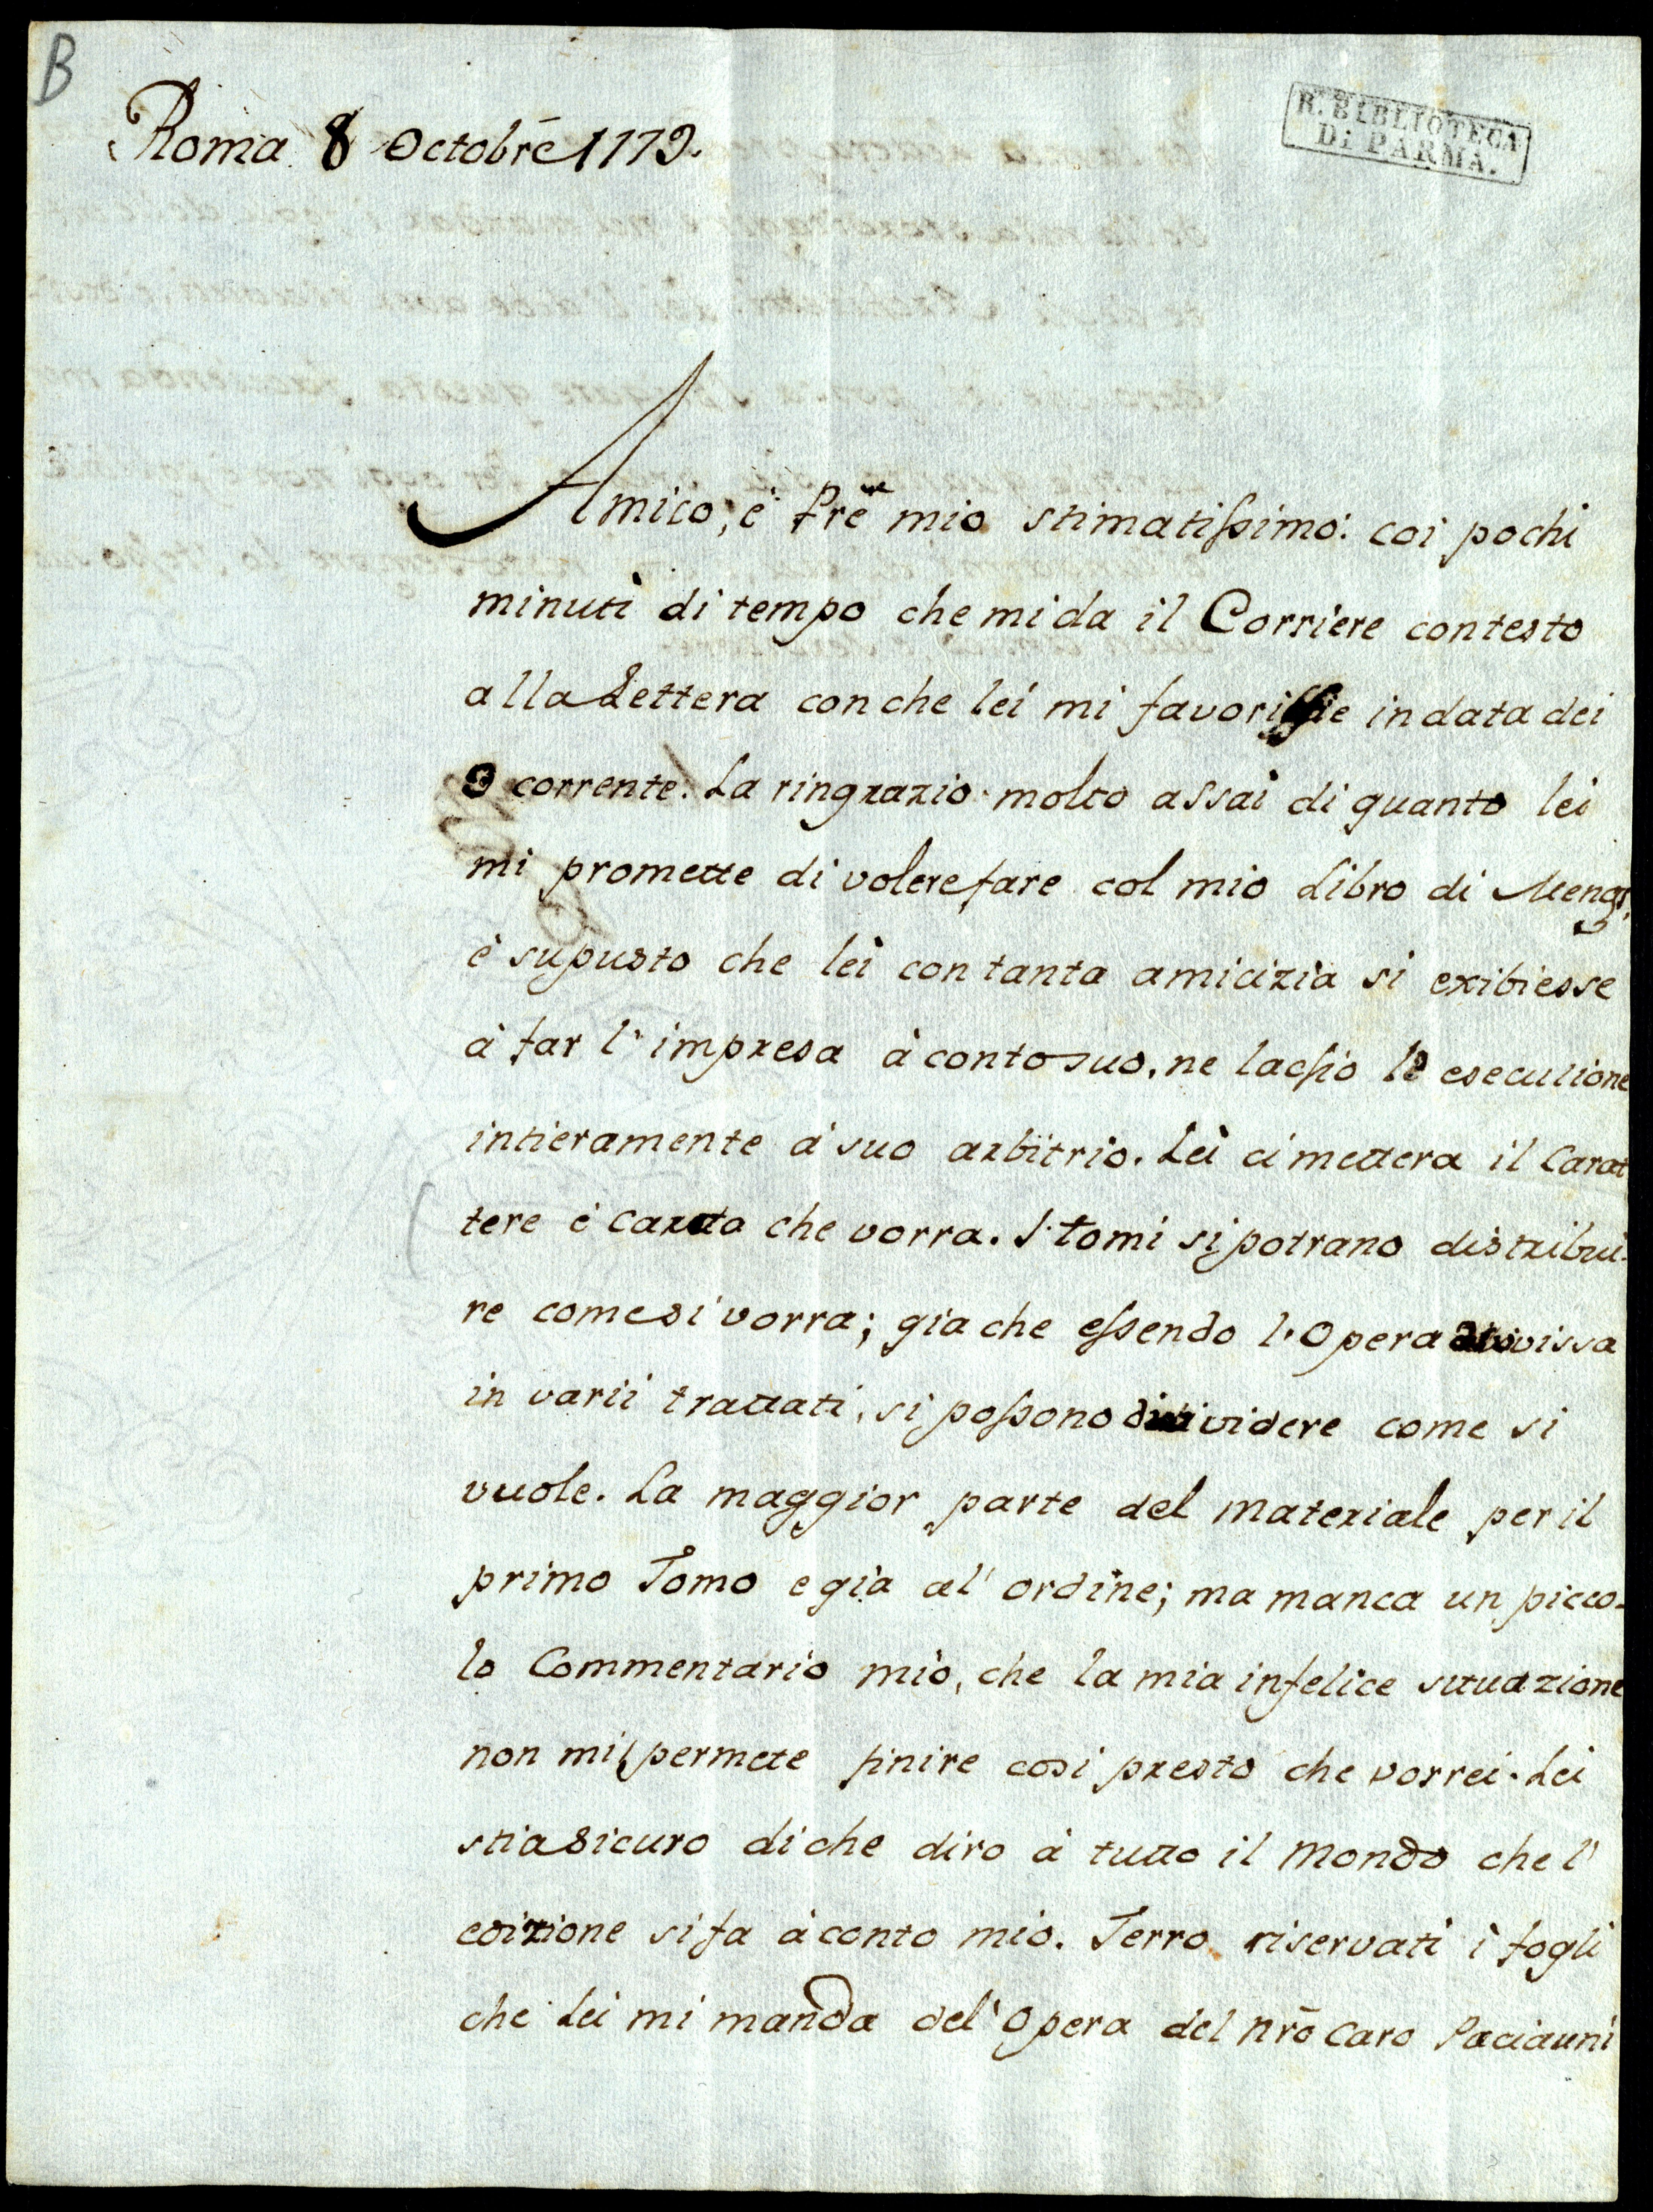 B
R. BIBLIOTECA
Di PARMA.
Roma 8 Octobrē 1779.
Amico, è Prē mio stimatissimo: coi pochi
minuti di tempo che mi da il Corriere contesto
alla Lettera con che lei mi favorissie in data dei
corrente. La ringrazio molto assai di quanto lei
mi promette di volere fare col mio Libro di Mengs,
è supusto che lei con tanta amicizia si exibiesse
à far l'impresa à conto suo, ne lascio la esecuzione
intieramente à suo arbitrio. Lei ci mettera il Carat
tere è Carta che vorra. I tomi si potrano distribui-
re come si vorra; gia che essendo l'Opera divissa
in varii trattati, si possono dividere come si
vuole. La maggior parte del materiale per il
primo Tomo e gia al' ordine; ma manca un picco-
lo Commentario mio, che la mia infelice situazione
non mi permette finire così presto che vorrei. Lei
stia sicuro di che diro à tutto il Mondo che l'
edizione si fa à conto mio. Terro riservati i fogli
che Lei mi manda del' Opera del nrō Caro Paciauni